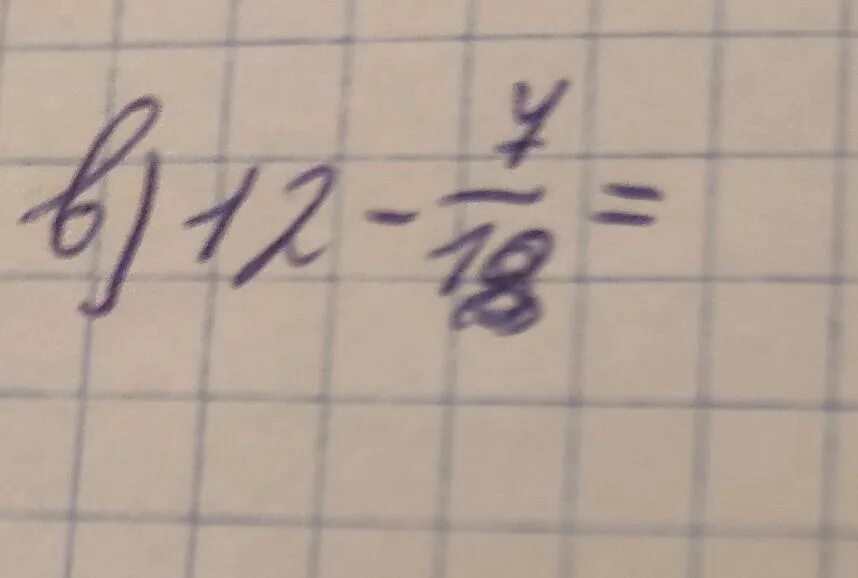 в) 12 - 7/18 =